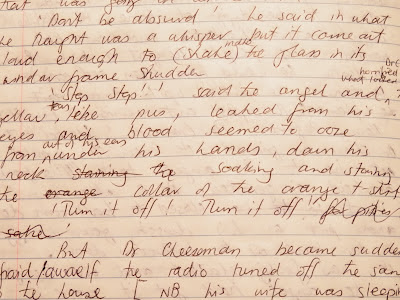 that was going
'Don't be absurd!' he said in what
he thought was a whisper but it came out
loud enough to (shake) make the glass in its
window frame shudder
'Stop stop!' said the angel and
yellow, like pus, leaked from his
eyes and blood seemed to ooze
from out of his ears under his hands, down his
neck staining the soaking and staining
the orange collar of the orange t shirt
'Turn it off! Turn it off!
sake
But Dr Cheeseman became sudden
afraid/ the radio turned off the same
to the house [NB his wife was sleeping